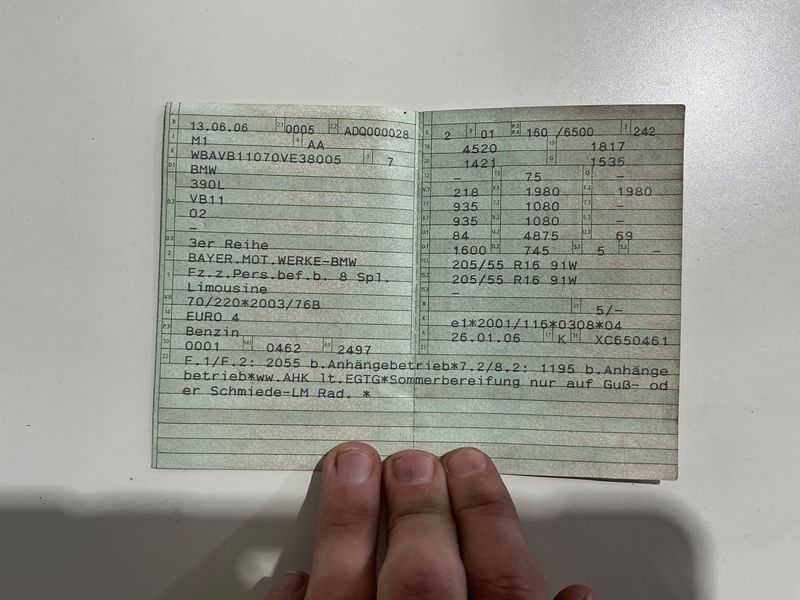 13.06.06 0005 ADQ000028
M1 AA
WBAVB11070VE38005 7
BMW
390L
VB11
02
–
3er Reihe
BAYER.MOT.WERKE-BMW
Fz.z.Pers.bef.b. 8 Spl.
Limousine
70/220*2003/76B
EURO 4
Benzin
0001 0462 2497
2 01 160 /6500 242
4520 1817
1421 1535
– 75 –
218 1980 1980
935 1080 –
935 1080 –
84 4875 69
1600 745 5 –
205/55 R16 91W
205/55 R16 91W
–
5/–
e1*2001/116*0308*04
26.01.06 K XC650461
F.1/F.2: 2055 b.Anhängebetrieb*7.2/8.2: 1195 b.Anhänge
betrieb*ww.AHK lt.EGTG*Sommerbereifung nur auf Guß- od
er Schmiede-LM Rad. *